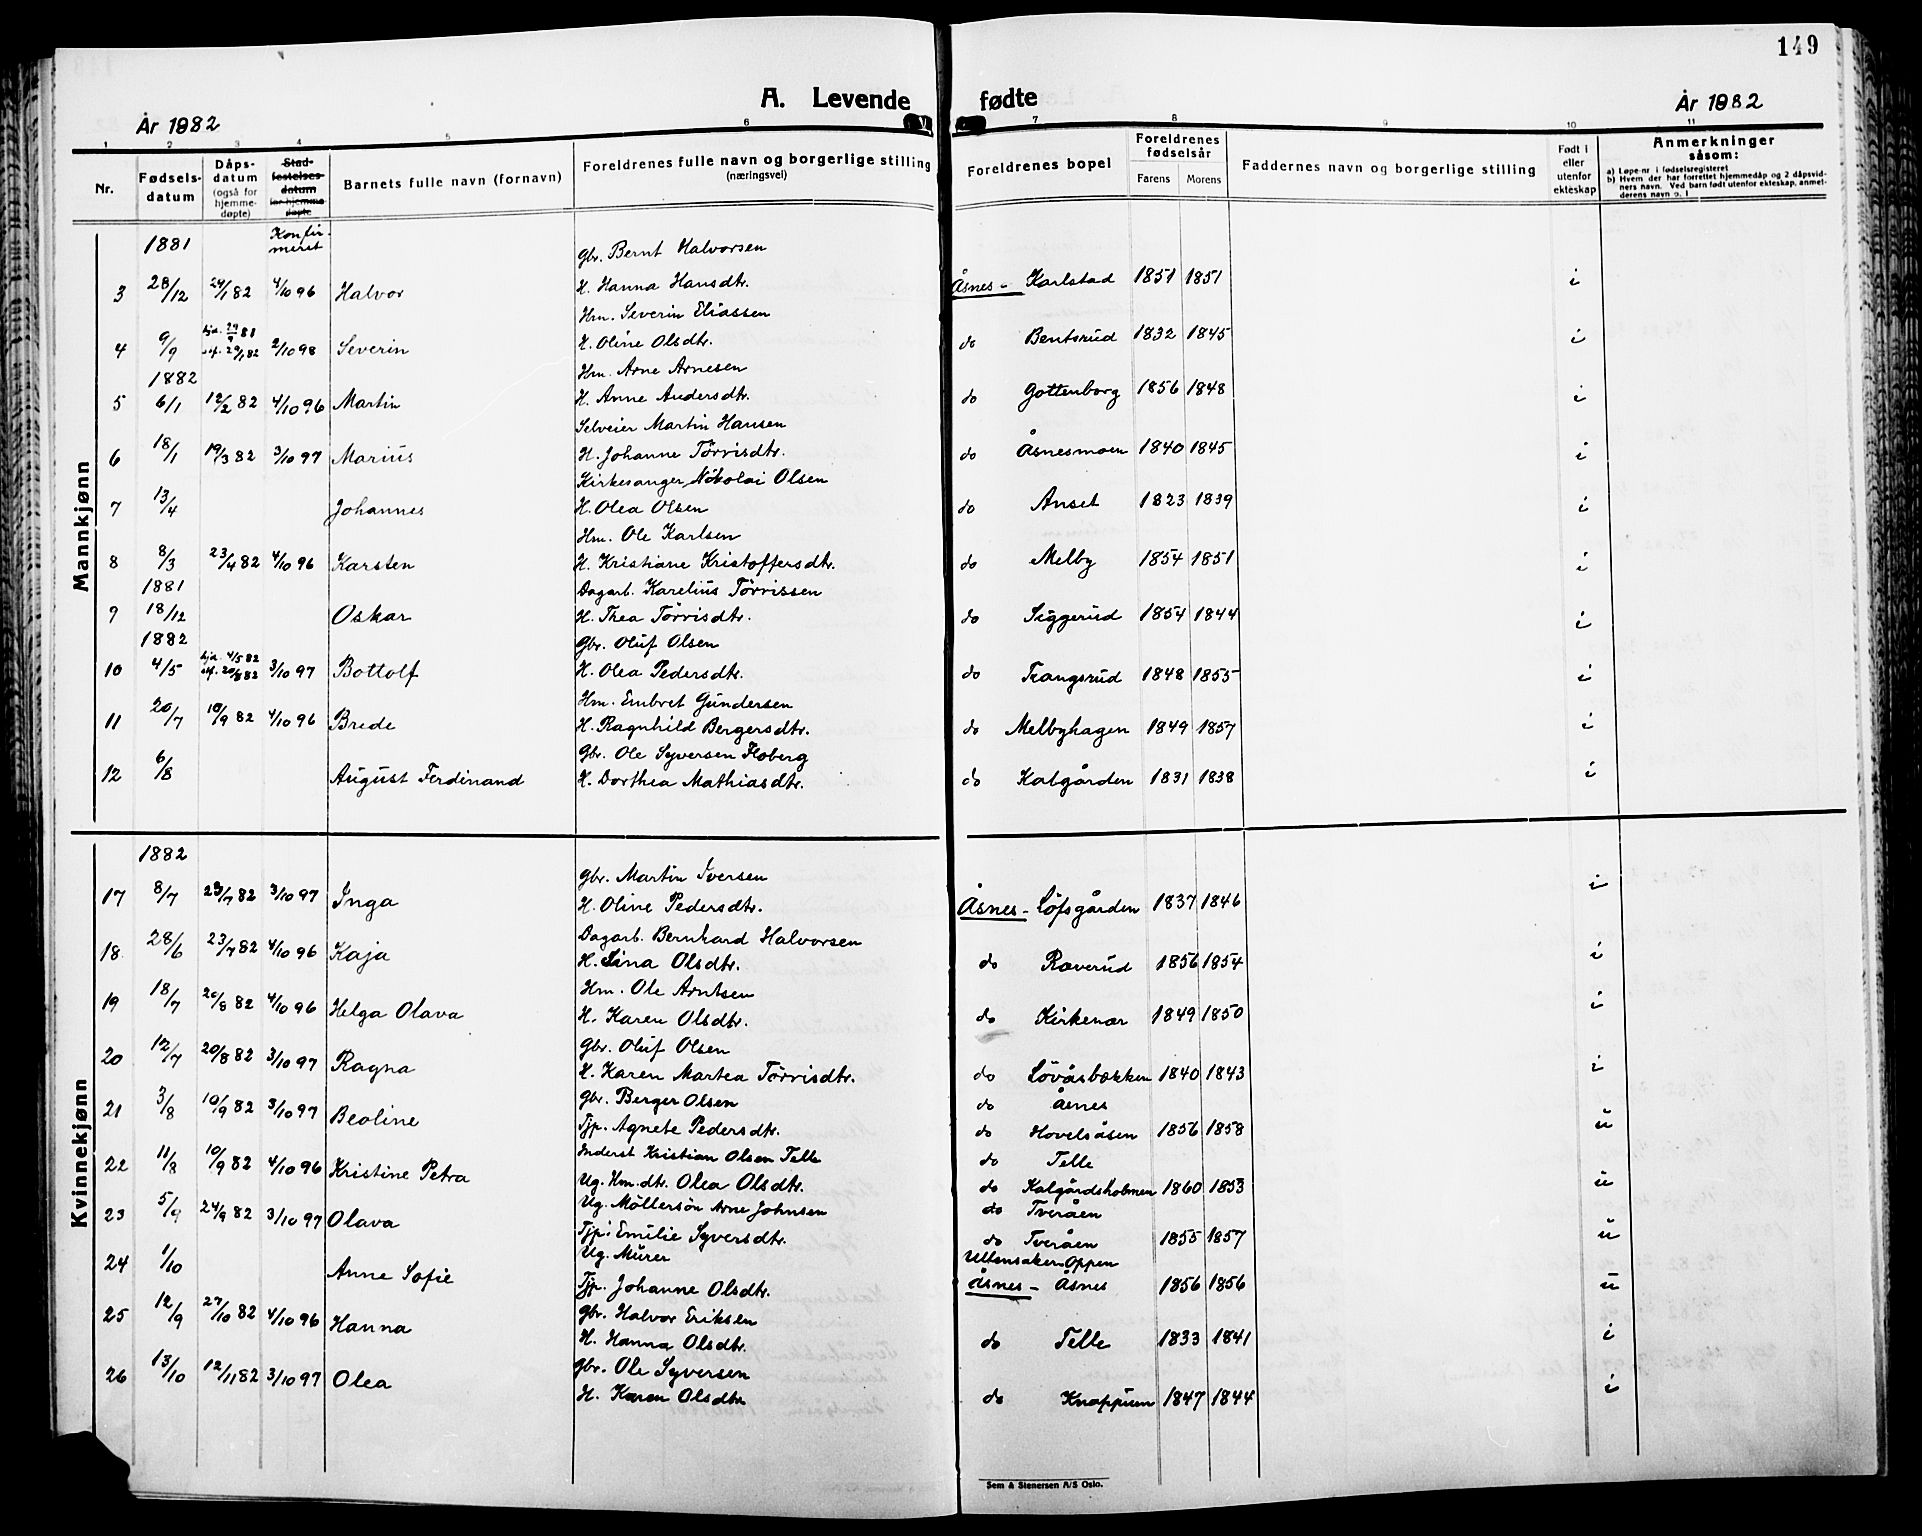 149
A. Levende fødte
År 1882
År 1882
1 2 3 4 5 6 7 8 9 10 11
Nr.
Fødsels-
datum
Dåps-
datum
(også for
hjemme-
døpte)
Stad-
festelses-
datum
for hjemme-
døpte
Barnets fulle navn (fornavn)
Foreldrenes fulle navn og borgerlige stilling
(næringsvei)
Foreldrenes bopel
Foreldrenes
fødselsår
Farens Morens
Faddernes navn og borgerlige stilling
Født i
eller
utenfor
ekteskap
Anmerkninger
såsom:
a) Løpe-nr i fødselsregisteret
b) Hvem der har forrettet hjemmedåp og 2 dåpsvid-
ners navn. Ved barn født utenfor ekteskap, anmel-
derens navn o. l
Mannkjønn
1881 Konfir-
meret
Gbr. Bernt Halvorsen
3 28/12 24/1 82 4/10 96 Halvor H. Hanna Hansdtr. Åsnes - Karlstad 1851 1851 i
Hm. Severin Eliassen
4 9/9 hjd. 29/9 81 st. 29/1 82 2/10 98 Severin H. Oline Olsdtr. do Bentsrud 1832 1845 i
1882 Hm. Arne Arnesen
5 6/1 12/2 82 4/10 96 Martin H. Anne Andersdtr. do Gottenborg 1856 1848 i
Selveier Martin Hansen
6 18/1 19/3 82 3/10 97 Marius H. Johanne Törrisdtr. do Åsnesmoen 1840 1845 i
Kirkesanger Nikolai Olsen
7 13/4 Johannes H. Olea Olsen do Anset 1823 1839 i
Hm. Ole Karlsen
8 8/3 23/4 82 4/10 96 Karsten H. Kristiane Kristoffersdtr. do Melby 1854 1851 i
1881 Dagarb. Karelius Törrissen
9 18/12 Oskar H. Thea Törrisdtr. do Siggerud 1854 1844 i
1882 Gbr. Oluf Olsen
10 4/5 hjd. 4/5 82 st. 20/8 82 3/10 97 Bottolf H. Olea Pedersdtr. do Trangsrud 1848 1855 i
Hm. Embret Gundersen
11 20/7 10/9 82 4/10 96 Brede H. Ragnhild Bergersdtr. do Melbyhagen 1849 1857 i
Gbr. Ole Syversen Floberg
12 6/8 August Ferdinand H. Dorthea Mathiasdtr. do Kalgården 1831 1838 i
Kvinnekjønn
1882
Gbr. Martin Iversen
17 8/7 23/7 82 3/10 97 Inga H. Oline Pedersdtr. Åsnes - Löfsgården 1837 1846 i
Dagarb. Bernhard Halvorsen
18 28/6 23/7 82 4/10 96 Kaja H. Sina Olsdtr. do Raverud 1856 1854 i
Hm. Ole Arntsen
19 18/7 20/8 82 4/10 96 Helga Olava H. Karen Olsdtr. do Kirkenær 1849 1850 i
Gbr. Oluf Olsen
20 12/7 20/8 82 3/10 97 Ragna H. Karen Martea Törrisdtr. do Lövåsbækken 1840 1843 i
Gbr. Berger Olsen do Åsnes
21 3/8 10/9 82 3/10 97 Beoline Tjp. Agnete Pedersdtr. do Hovelsåsen 1856 1858 u
Inderst Kristian Olsen Telle do Telle
22 11/8 10/9 82 4/10 96 Kristine Petra Ug. Hm.dt. Olea Olsdtr. do Kalgårdsholmen 1860 1853 u
Ug. Möllersön Arne Johnsen do Tveråen
23 5/9 24/9 82 3/10 97 Olava Tjp: Emilie Syversdtr. do Tveråen 1855 1857 u
Ug. Murer Ullensaker Oppen
24 1/10 Anne Sofie Tjp. Johanne Olsdtr. Åsnes - Åsnes 1856 1856 u
Gbr. Halvor Eriksen
25 12/9 27/10 82 4/10 96 Hanna H. Hanna Olsdtr. do Telle 1833 1841 i
Gbr. Ole Syversen
26 13/10 12/11 82 3/10 97 Olea H. Karen Olsdtr do Knappum 1847 1844 i
Sem & Stenersen A/S Oslo.